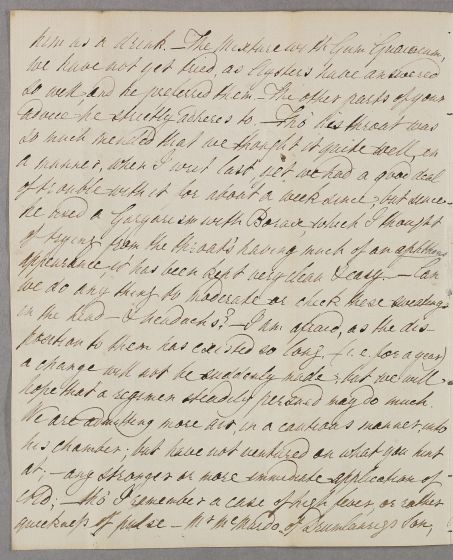 him as a drink. – The Mixture with Gum Guaiacum,
we have not yet tried, as Clysters have answered
so well, and he preferred them. – The other parts of your
advice he strictly adheres to. – Tho' his throat was
so much mended that we thought it quite well, in
a manner, when I writ last, yet we had a good deal
of trouble with it for about a week since; but since
he used a Gargarism with Borax, which I thought
of trying from the throat's having much of an aphthous
appearance, it has been kept very clean & easy. – Can
we do any thing to moderate or check these sweatings
in the head – & headachs? – I am afraid, as the dis-
position to them has existed so long – (i.e. for a year)
a change will not be suddenly made; but we will
hope that a regimen steadily persued may do much.
We are admitting more air, in a cautious manner, into
his chamber; but have not ventured on what you hint
at; – any stronger or more immediate application of
cold; – tho' I remember a case of high fever, or rather
quickness of pulse – Mr McMurdo, of Drumlanrigs Son,